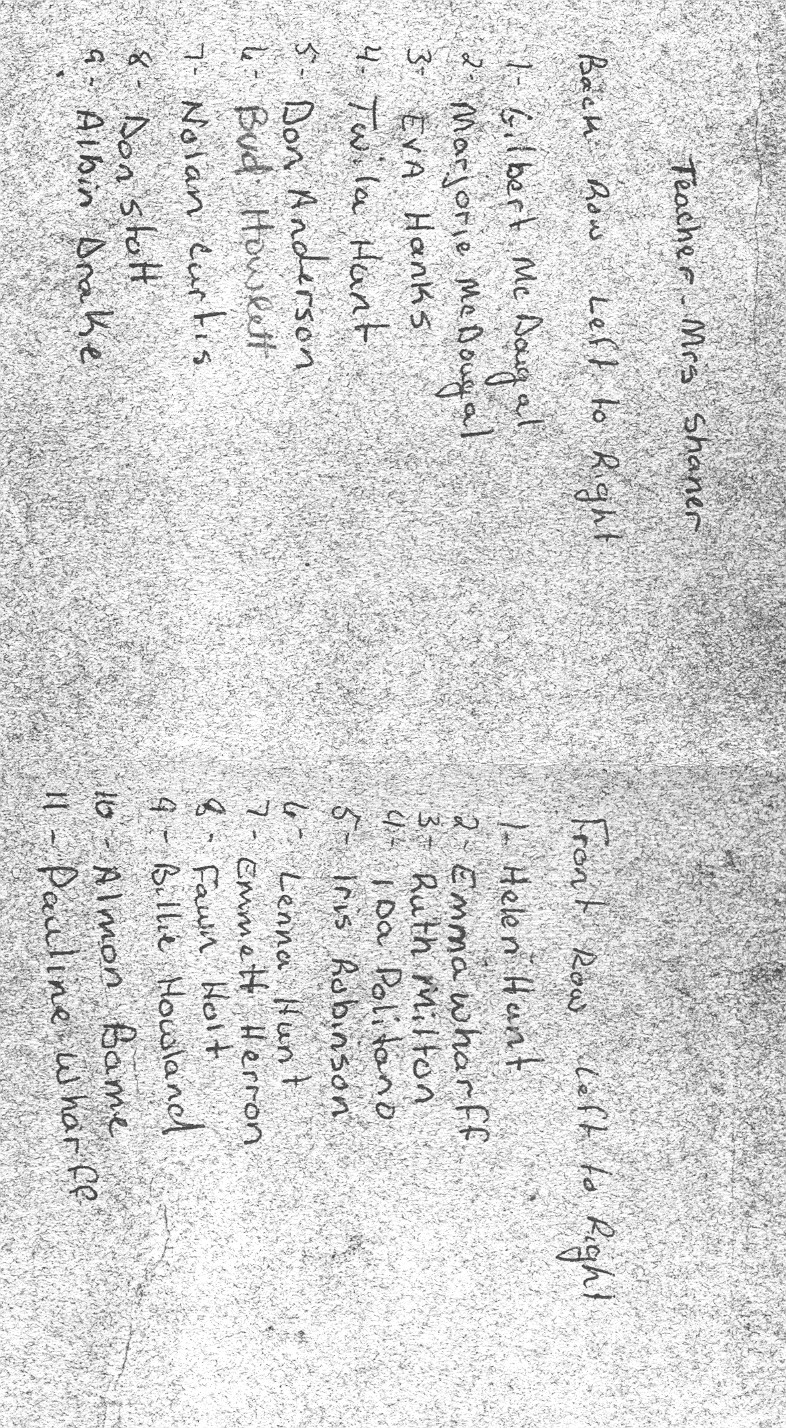 Teacher - Mrs Shaner
Back Row Left to Right
1- Gilbert McDougal
2- Marjorie McDougal
3- EVA Hanks
4- Twila Hunt
5- Don Anderson
6- Bud Howlett
7- Nolan Curtis
8- Don Stott
9- Albin Drake
Front Row Left to Right
1- Helen Hunt
2- Emma Wharff
3- Ruth Milton
4- IDa Politano
5- Iris Robinson
6- Lenna Hunt
7- Emmett Herron
8- Fawn Holt
9- Billie Howland
10- Almon Bame
11- Pauline Wharff